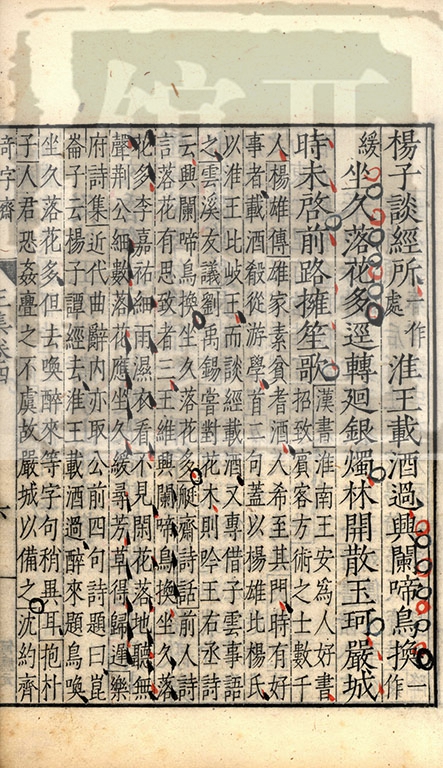 楊子談經所一作處淮王載酒過興闌啼鳥換一作
緩坐久落花多逕轉廻銀燭林開散玉珂嚴城
時未啓前路擁笙歌漢書淮南王安為人好書招致賓客方術之士數千
人楊雄傳雄家素貧耆酒人希至其門時有好
事者載酒殽從游學首二句蓋以楊雄比楊氏
以淮王比岐王而談經載酒又專借子雲事語
之雲溪友議劉禹錫嘗對花木則吟王右丞詩
云興闌啼鳥換坐久落花多艇齋詩話前人詩
言落花有思致者三王維興闌啼鳥換坐久落
花多李嘉祐細雨濕衣看不見閑花落地聽無
聲荆公細數落花應坐久緩尋芳草得歸遲樂
府詩集近代曲辭内亦取公前四句詩題曰崑
崙子云楊子譚經去淮王載酒過醉來題鳥喚
坐久落花多但去喚醉來等字句稍異耳抱朴
子人君恐姦亹之不虞故嚴城以備之沈約齊
奇字齋